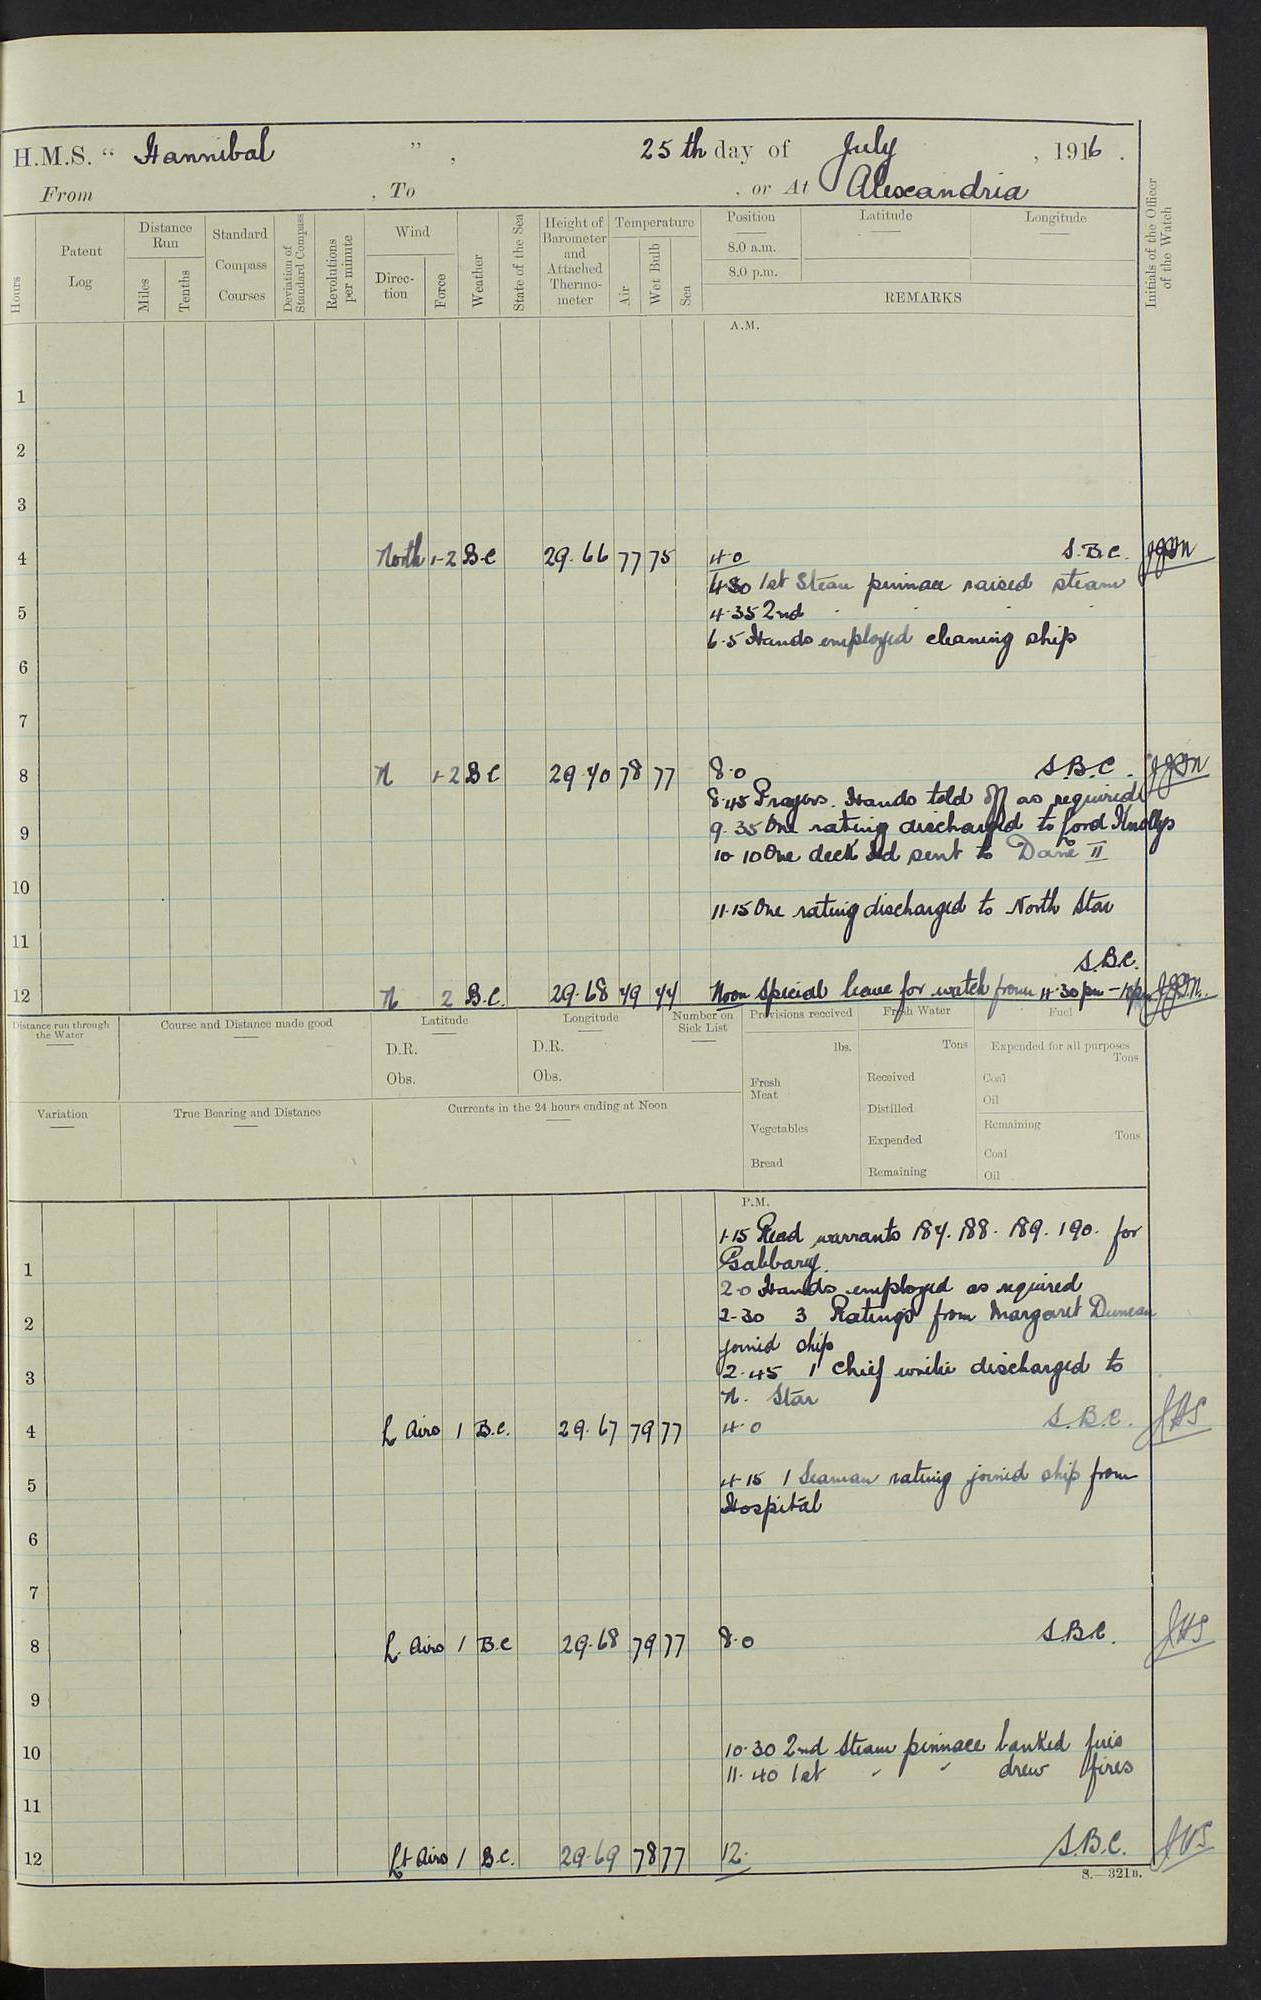 H.M.S. " Hannibal ", 25th day of July, 1916.
From , To , or At Alexandria
Hours
Patent Log
Distance Run
Miles
Tenths
Standard Compass Courses
Deviation of Standard Compass
Revolutions per minute
Wind
Direction
Force
Weather
State of the Sea
Height of Barometer and Attached Thermometer
Temperature
Air
Wet Bulb
Sea
Position
8.0 a.m.
8.0 p.m.
Latitude
Longitude
REMARKS
Initials of the Officer of the Watch
A.M.
1
2
3
4 North 1-2 B.C 29.66 77 75 4.0 S.B.C.
4.30 1st Steam pinnace raised steam
5 4.35 2nd " " "
6.5 Hands employed cleaning ship
6
7
8 N 1-2 B C 29.70 78 77 8.0 S.B.C.
8.45 Prayers. Hands told off as required
9 9.35 One rating discharged to Lord Knollys
10.10 One deck hd sent to Dane II
10
11.15 One rating discharged to North Star
11
S.B.C.
12 N 2 B.C. 29.68 79 77 Noon Special leave for watch from 4.30pm -
Distance run through the Water
Course and Distance made good
Latitude
D.R.
Obs.
Longitude
D.R.
Obs.
Number on Sick List
Provisions received
lbs.
Fresh Meat
Vegetables
Bread
Fresh Water
Tons
Received
Distilled
Expended
Remaining
Fuel
Expended for all purposes
Tons
Coal
Oil
Remaining
Tons
Coal
Oil
Variation
True Bearing and Distance
Currents in the 24 hours ending at Noon
P.M.
1.15 Read warrants 187. 188. 189. 190. for
1 Gabbary.
2.0 Hands employed as required
2 2-30 3 Ratings from Margaret Duncan
joined ship
3 2.45 1 Chief discharged to
N. Star
4 L Airs 1 B.C. 29.67 79 77 4.0 S.B.C. JHS
5 4.15 1 Seaman rating joined ship from
Hospital
6
7
8 L. Airs 1 B.C 29.68 79 77 8.0 S.B.C. JHS
9
10 10.30 2nd Steam pinnace banked fires
11.40 1st " " drew fires
11
12 Lt Airs 1 B.C. 29.69 78 77 12. S.B.C. JHS
S.—321B.